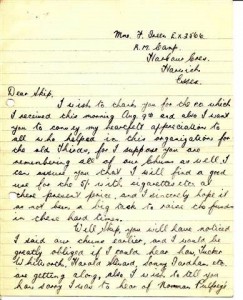 R.M. Camp.
Harbour Cres.
Harwich
Essex.
Dear Skip,
I wish to thank you for the
I received this morning Aug 9th and also I want
you to convey my heartfelt appreciation to
all who helped in this organization for
the old Thirds, for I suppose you are
remembering all of our Chums as well. I
can assure you that I will find a good
use for the 5/- with cigarettes etc at
their present price, and I sincerely hope it
is not been a big task to raise the funds
in these hard times.
Well skip, you will have noticed
I said our chums earlier, and I would be
greatly obliged if I could hear how
Whitworth, Harold
are getting along, also I wish to tell you
how sorry I was to hear of Norman